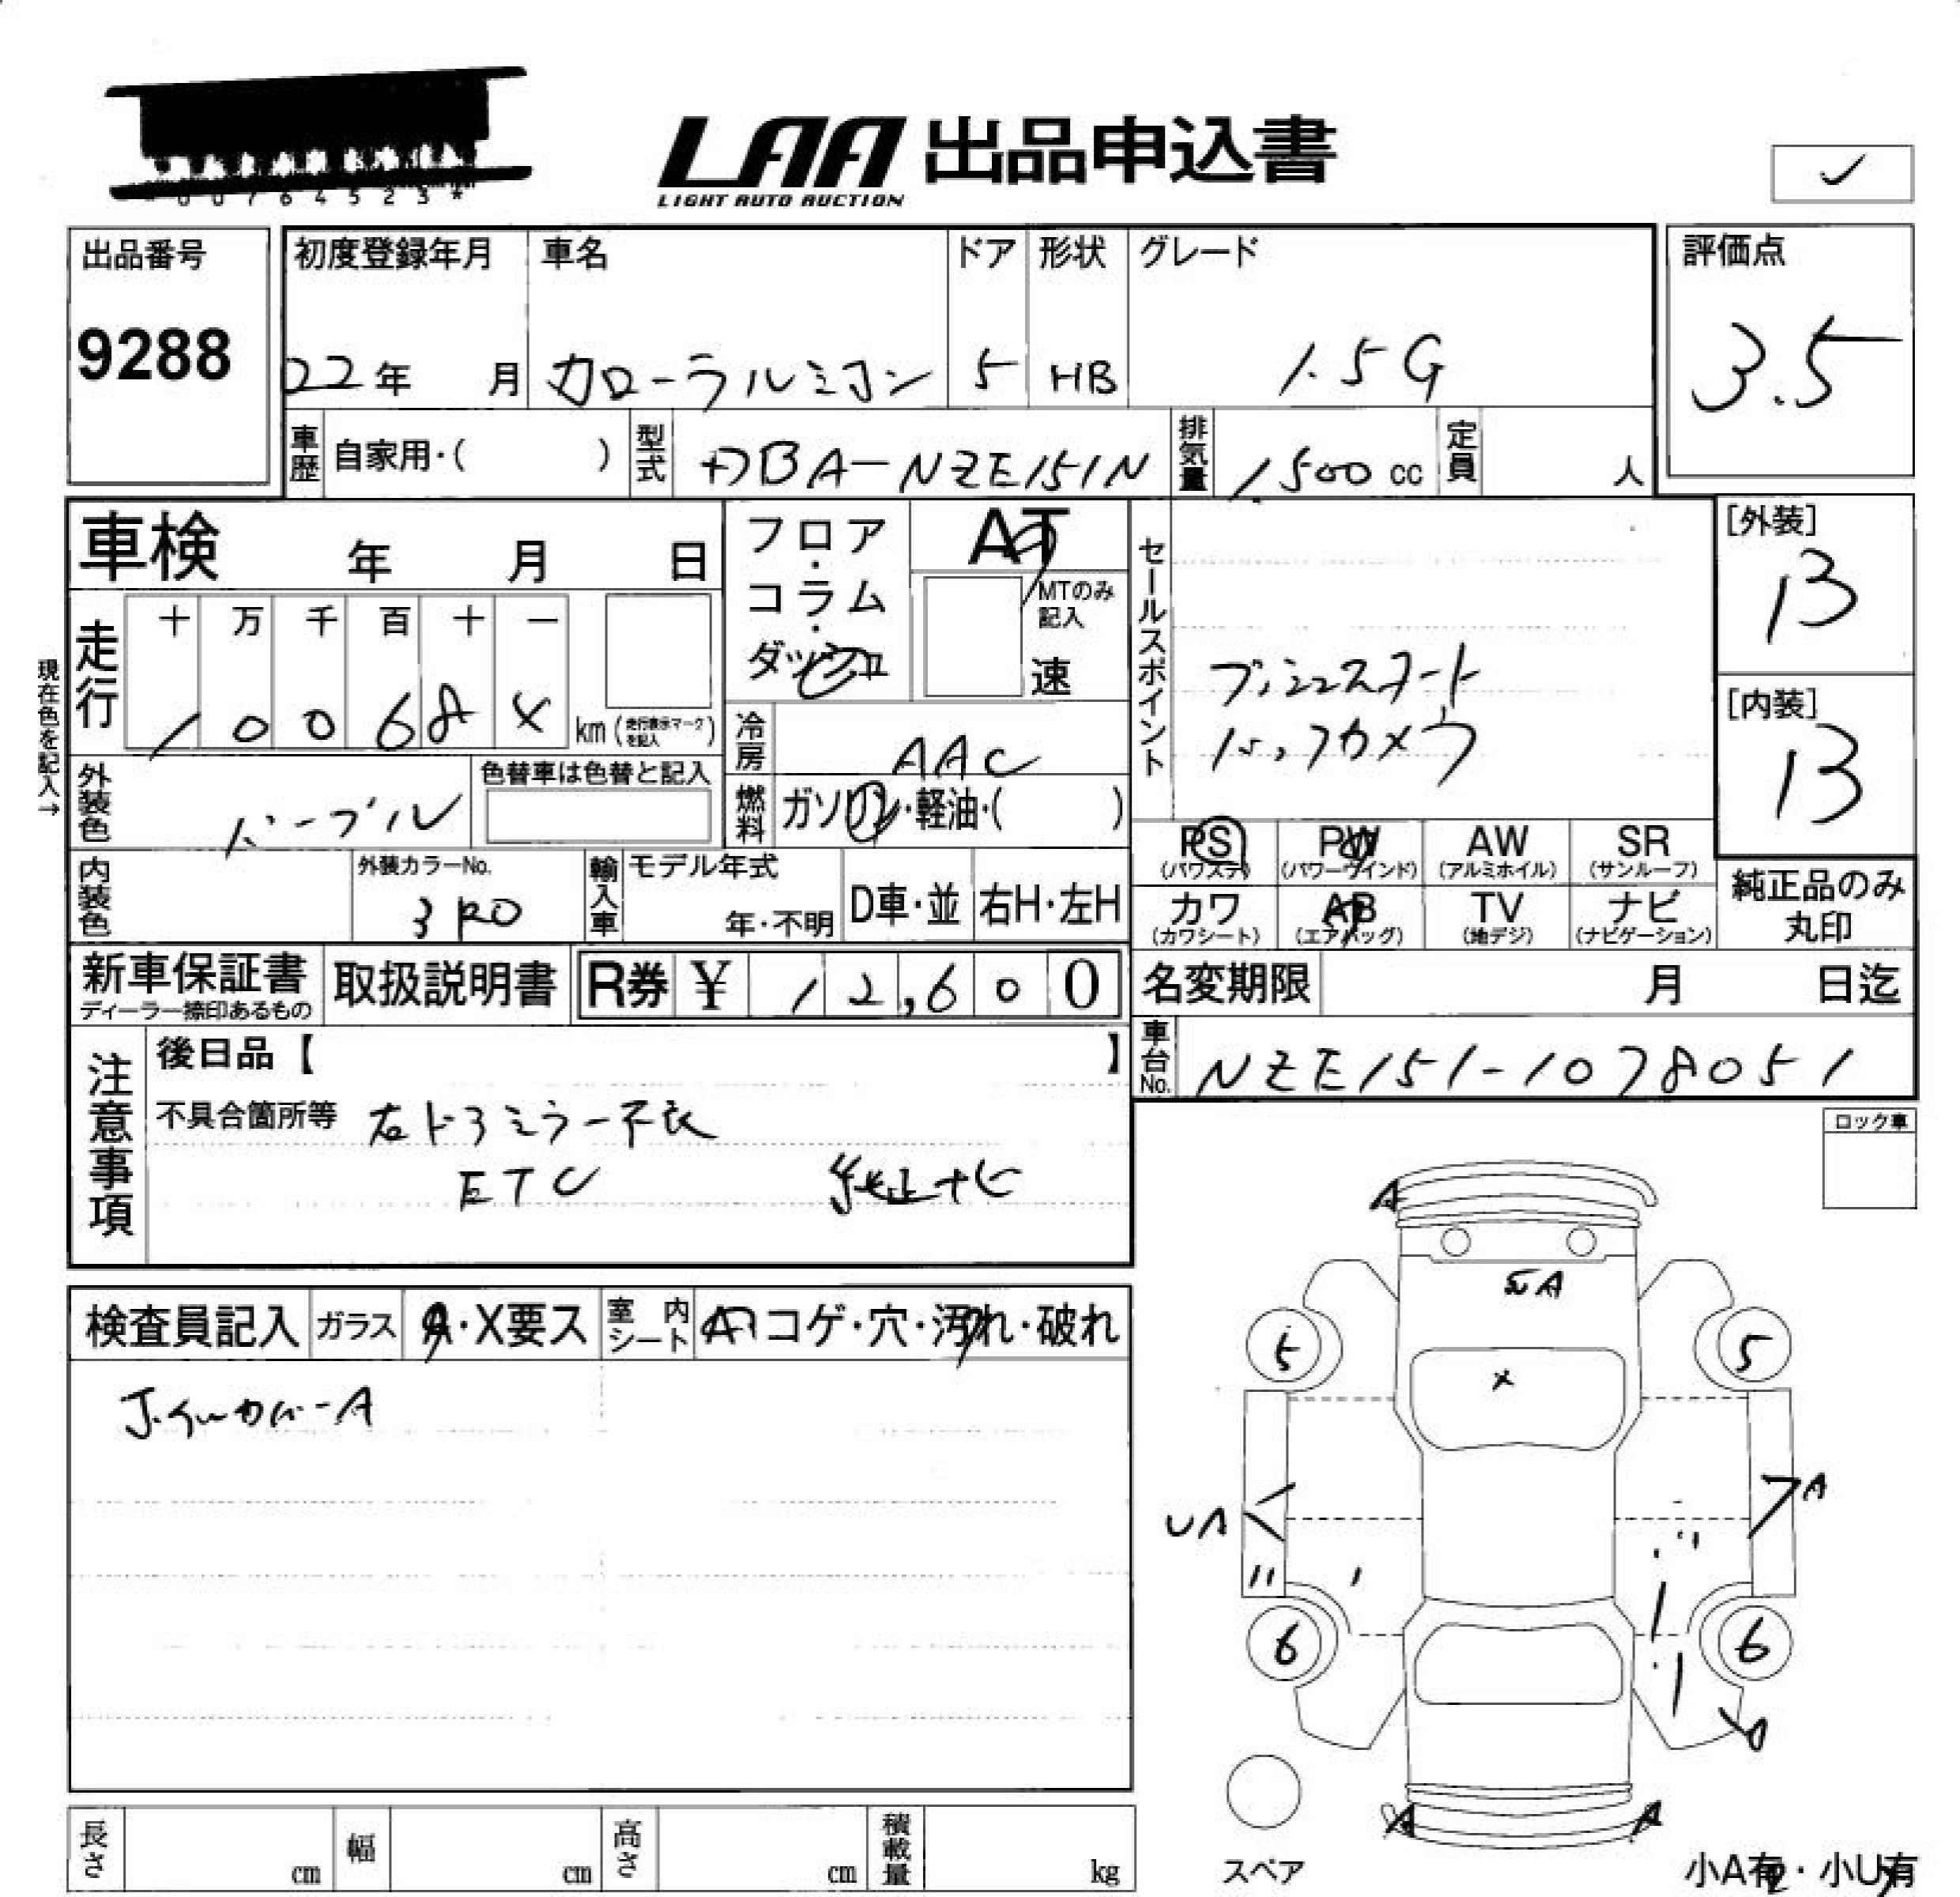 00764523*
LAA 出品申込書
LIGHT AUTO AUCTION
出品番号
9288
初度登録年月
22年 月
車名
カローラルミオン
ドア
5
形状
HB
グレード
1.5G
評価点
3.5
車歴 自家用・( )
型式 DBA-NZE151N
排気量 1500 cc
定員 人
車検 年 月 日
フロア・コラム・ダッシュ
AT
MTのみ記入
速
セールスポイント
プッシュスタート
バックカメラ
[外装]
13
[内装]
13
現在色を記入→
走行
十 万 千 百 十 一
1 0 0 6 8 x km (走行表示マークを記入)
冷房 AAC
外装色 パープル
色替車は色替と記入
燃料 ガソリン・軽油・( )
PS (パワステ)
PW (パワーウインド)
AW (アルミホイル)
SR (サンルーフ)
カワ (カワシート)
AB (エアバッグ)
TV (地デジ)
ナビ (ナビゲーション)
純正品のみ丸印
内装色
外装カラーNo.
3R0
輸入車
モデル年式
年・不明
D車・並
右H・左H
新車保証書
ディーラー捺印あるもの
取扱説明書
R券 ¥ 12,600
名変期限 月 日迄
車台No. NZE151-1078051
注意事項
後日品【 】
不具合箇所等 右ドアミラー不良
ETC 純正ナビ
ロック車
検査員記入
ガラス A・X要ス
室内シート コゲ・穴・汚れ・破れ
A
A
x
5
5
UA
A
6
6
A
A
スペア
小A有・小U有
長さ cm
幅 cm
高さ cm
積載量 kg